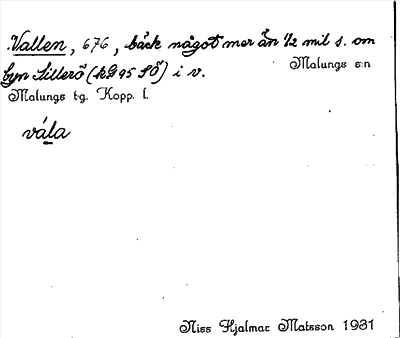 Vallen, 676, bäck något mer än 1/2 mil s. om
byn Sillerö (kG 95 SÖ) i v.
Malungs s:n
Malungs tg. Kopp. l.
vála
Niss Hjalmar Matsson 1931